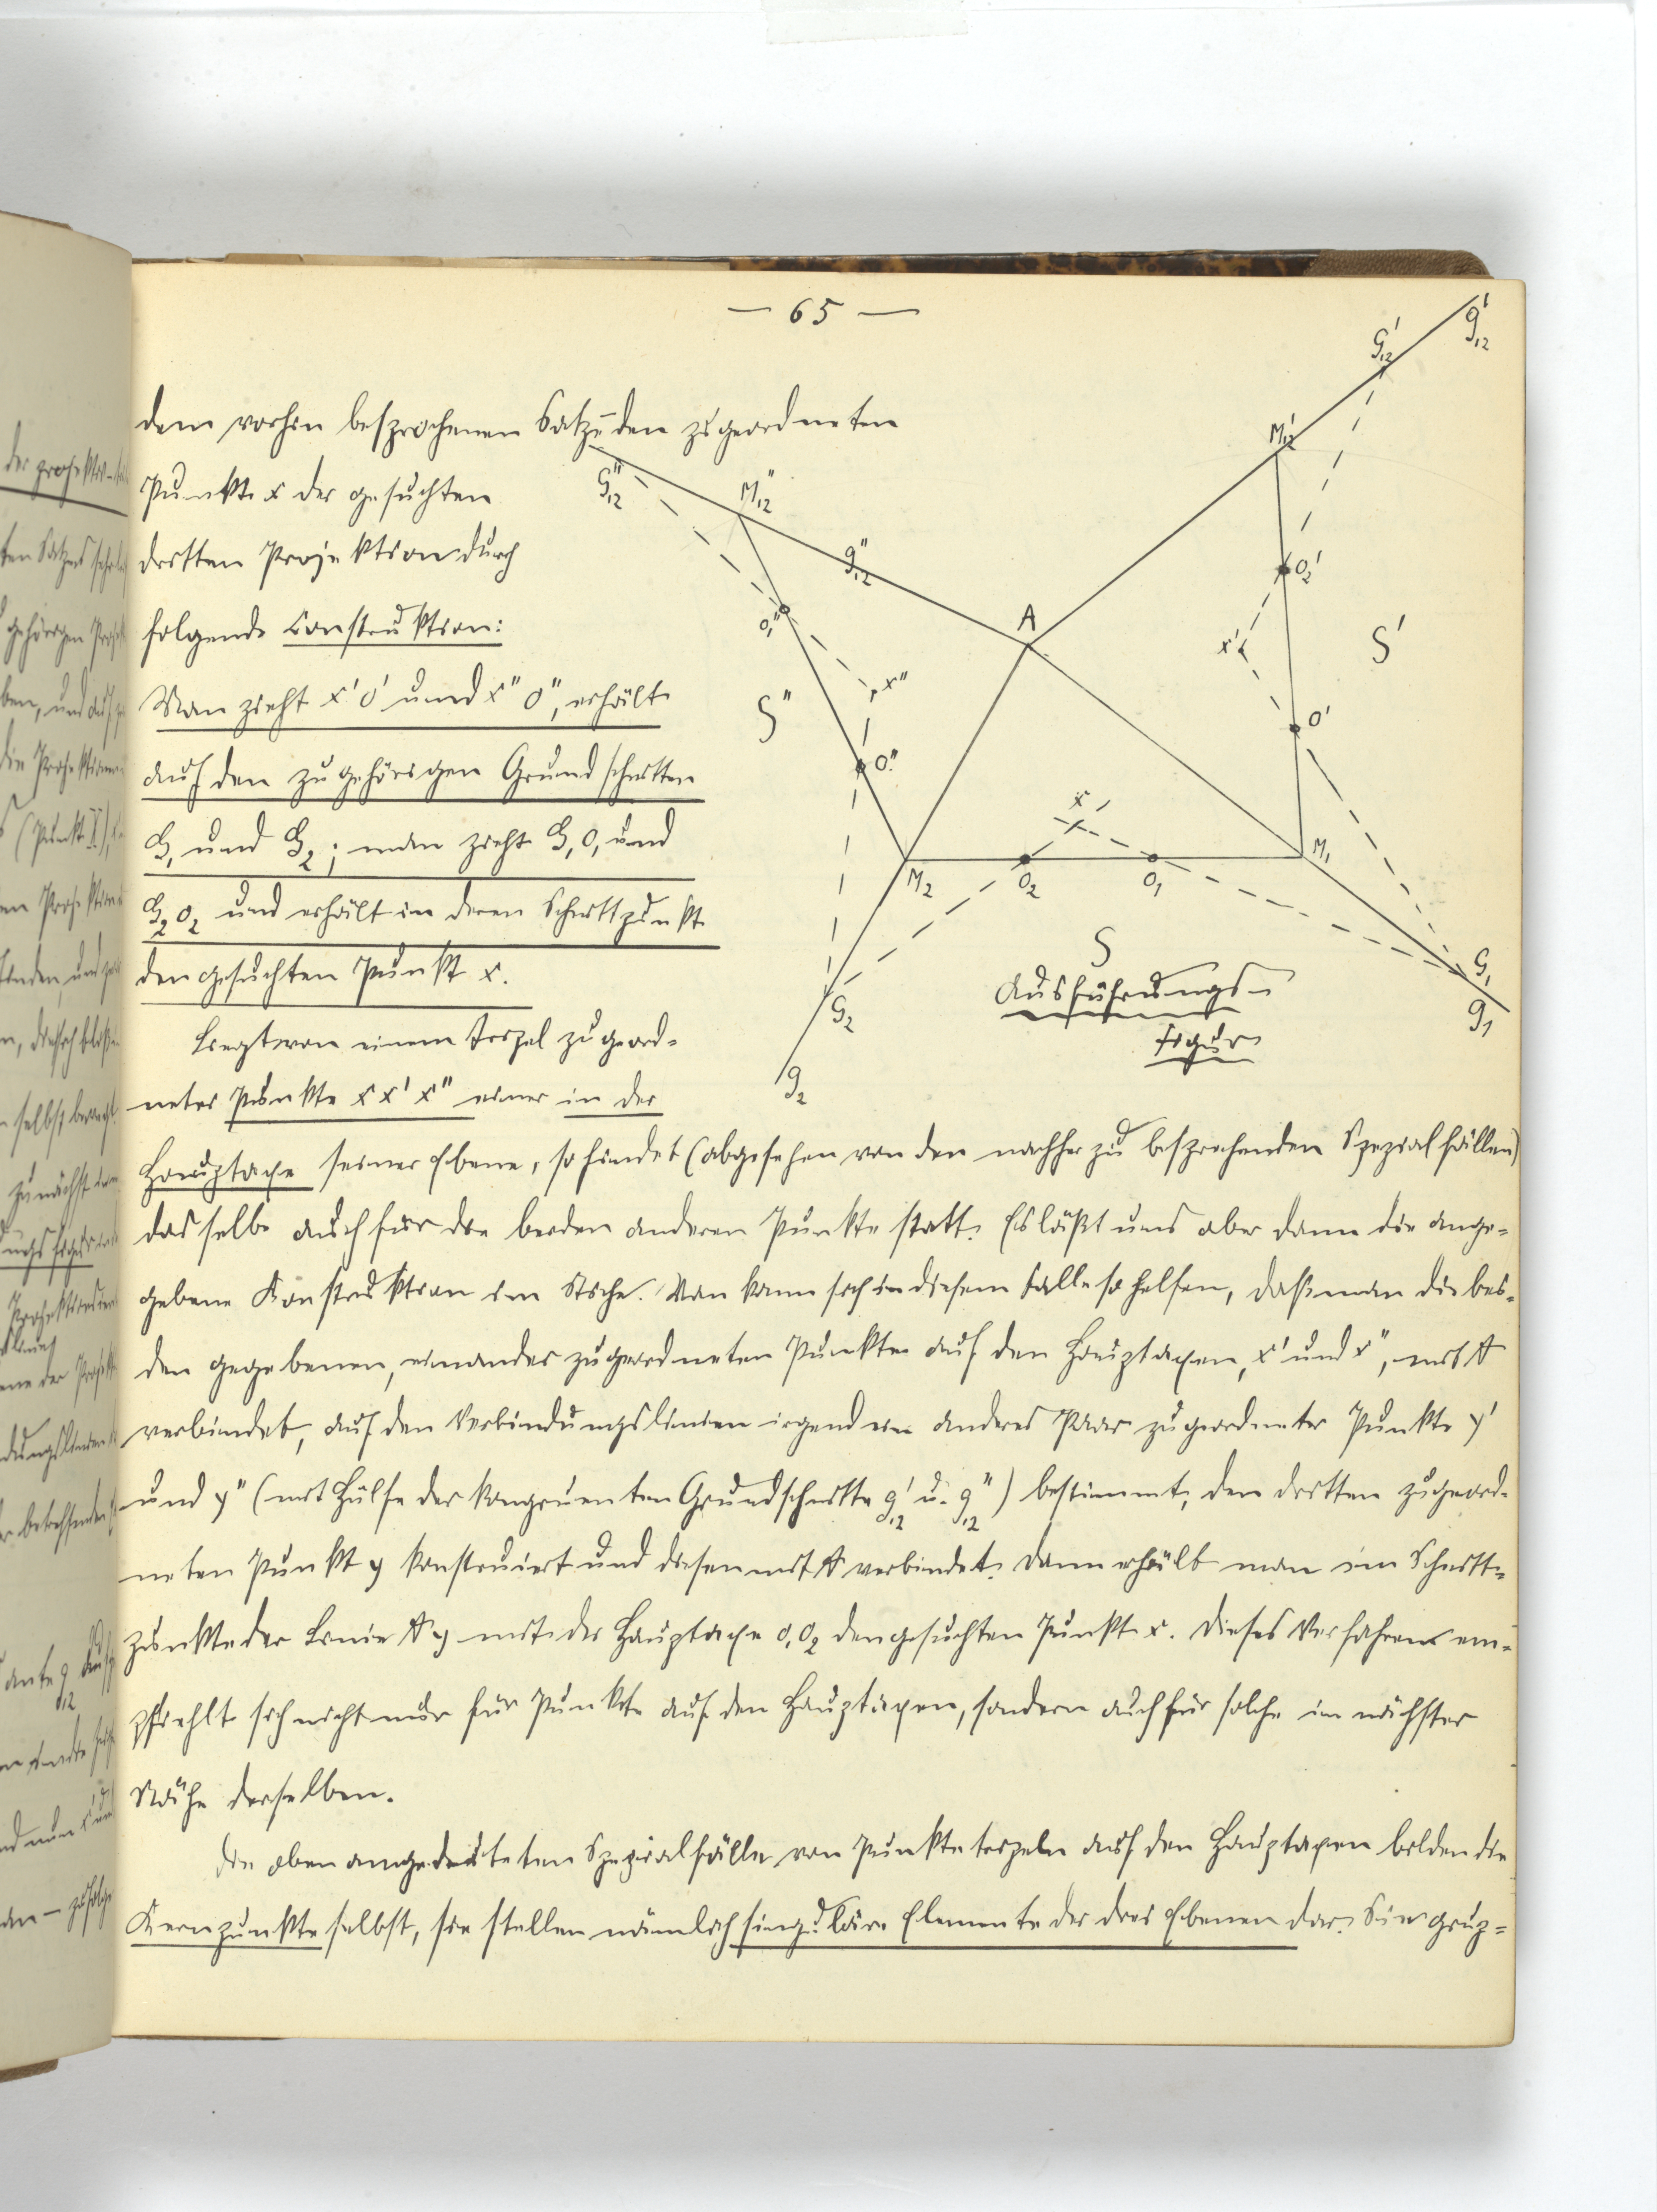 — 65 —
dem vorhin besprochenen Satze den zugeordneten
Punkt x der gesuchten
dritten Projektion durch
folgende Construktion:
Man zieht x'o' und x"o", erhält
auf den zugehörigen Grundschnitten
G₁ und G₂; man zieht G₁O₁ und
G₂O₂ und erhält in deren Schnittpunkt
den gesuchten Punkt x.
Liegt von einem Tripel zugeord-
neter Punkte x x' x" einer in der
Hauptaxe seiner Ebene, so findet (abgesehen von den nachher zu besprechenden Spezialfällen)
dasselbe auch für die beiden anderen Punkte statt. Es läßt uns aber dann die ange-
gebene Konstruktion im Stiche. Man kann sich in diesem Falle so helfen, daß man die bei-
den gegebenen, einander zugeordneten Punkte auf den Hauptaxen, x' und x", mit A
verbindet, auf den Verbindungslinien irgend ein anderes Paar zugeordneter Punkte y'
und y" (mit Hülfe der kongruenten Grundschnitte g'₁₂ u. g"₁₂) bestimmt, den dritten zugeord-
neten Punkt y konstruiert und diesen mit A verbindet. Dann erhält man im Schnitt-
punkte der Linie Ay mit der Hauptaxe O₁O₂ den gesuchten Punkt x. Dieses Verfahren em-
pfiehlt sich nicht nur für Punkte auf den Hauptaxen, sondern auch für solche in nächster
Nähe derselben.
Die oben angedeuteten Spezialfälle von Punktetripeln auf den Hauptaxen bilden die
Kernpunkte selbst, sie stellen nämlich singuläre Elemente der drei Ebenen dar. Sie grup-
G"₁₂
M"₁₂
g"₁₂
A
M'₁₂
G'₁₂
g'₁₂
O₂'
x'
S'
O'
O₁"
x"
S"
O"
x
M₂
O₂
O₁
M₁
G₂
g₂
G₁
g₁
S
Ausführungs-
figur